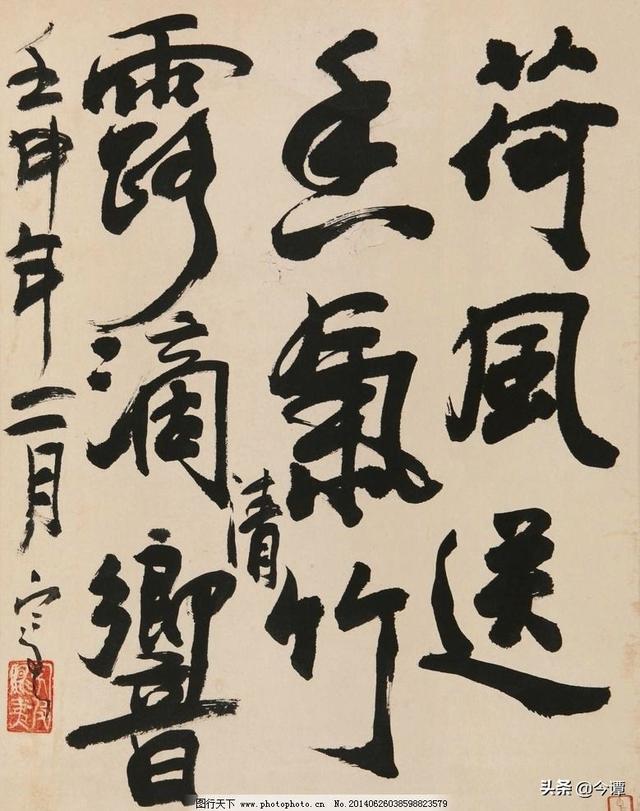 荷風送
香氣竹
露滴清響
壬申年二月
头条 @今谭
图行天下 www.photophoto.cn No.20140626038598823579